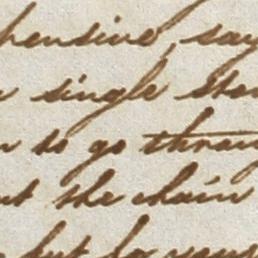 hensive, say
single ste
to go throu
the chain
but for your